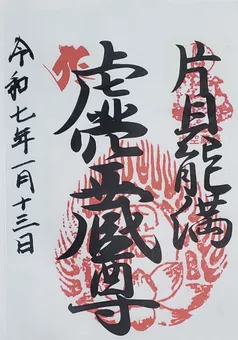 片貝能満
虚空蔵尊
令和七年一月十三日